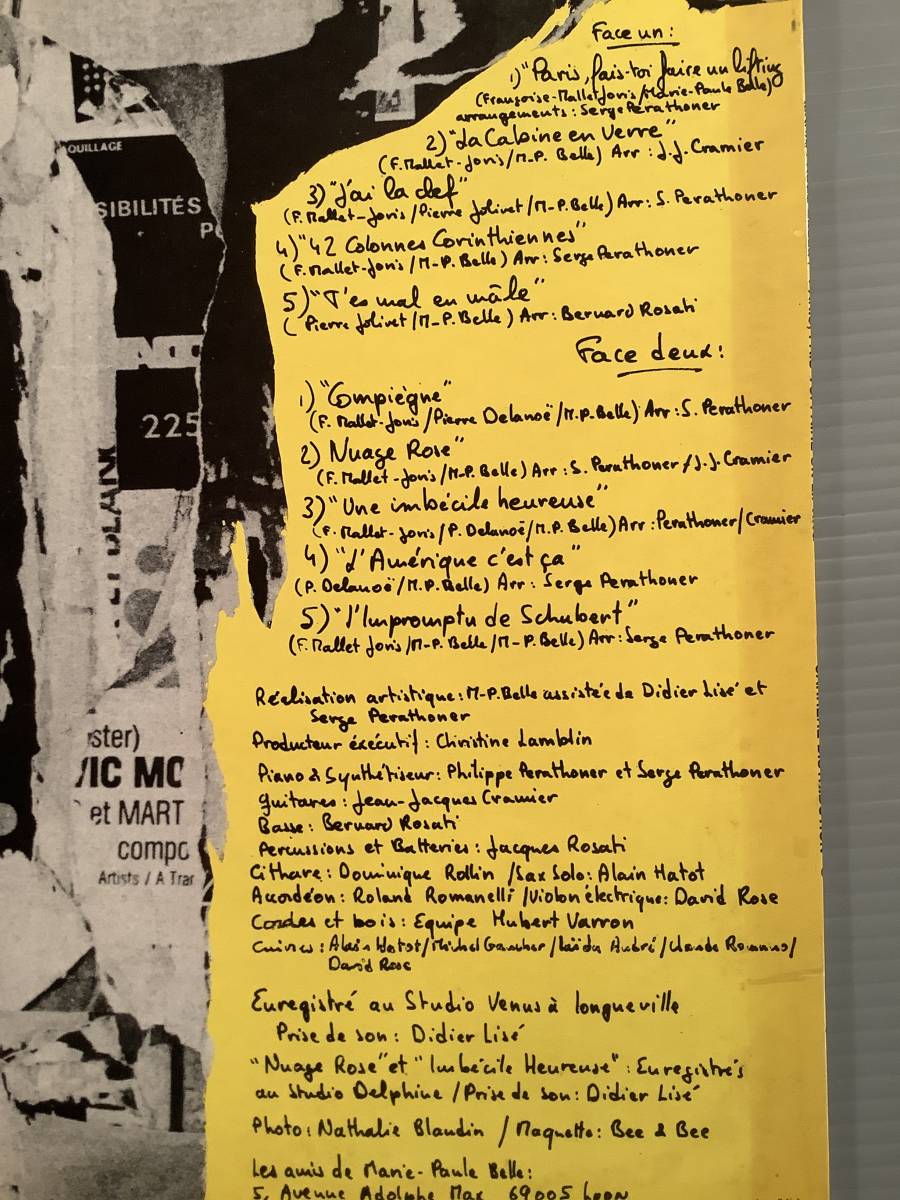 Face un :
1) "Paris, fais-toi faire un lifting
(Françoise-Mallet Joris/Marie-Paule Belle)
arrangements : Serge Perathoner
2) "La Cabine en Verre"
(F. Mallet-Joris/M-P. Belle) Arr : J.J. Cramier
3) "J'ai la clef"
(F. Mallet-Joris/Pierre Jolivet/M-P. Belle) Arr : S. Perathoner
4) "42 Colonnes Corinthiennes"
(F. Mallet-Joris/M-P. Belle) Arr : Serge Perathoner
5) "T'es mal en mâle"
(Pierre Jolivet/M-P. Belle) Arr : Bernard Rosati
Face deux :
1) "Compiègne"
(F. Mallet-Joris/Pierre Delanoë/M.P-Belle) Arr : S. Perathoner
2) Nuage Rose"
(F. Mallet-Joris/M-P. Belle) Arr : S. Perathoner/J.J. Cramier
3) "Une imbécile heureuse"
(F. Mallet-Joris/P. Delanoë/M.P. Belle) Arr : Perathoner/Cramier
4) "L'Amérique c'est ça"
(P. Delanoë/M.P. Belle) Arr : Serge Perathoner
5) "l'Impromptu de Schubert"
(F. Mallet Joris/M-P. Belle/M-P. Belle) Arr : Serge Perathoner
Réalisation artistique : M-P. Belle assistée de Didier Lisé et
Serge Perathoner
Producteur éxécutif : Christine Lamblin
Piano & Synthétiseur : Philippe Perathoner et Serge Perathoner
Guitares : Jean-Jacques Cramier
Basse : Bernard Rosati
Percussions et Batteries : Jacques Rosati
Cithare : Dominique Rollin / Sax Solo : Alain Hatot
Acordéon : Roland Romanelli / Violon électrique : David Rose
Cordes et bois : Equipe Hubert Varron
Cuivres : Alain Hatot/Michel Gaucher/ André/ /
David Rose
Enregistré au Studio Venus à longueville
Prise de son : Didier Lisé
"Nuage Rose" et "Imbécile Heureuse" : Enregistrés
au Studio Delphine / Prise de son : Didier Lisé
Photo : Nathalie Blandin / Maquette : Bee & Bee
Les amis de Marie-Paule Belle :
5, Avenue Adolphe Max 69005 Lyon
QUILLAGE
SIBILITÉS
P
225
ster)
VIC MO
et MART
compo
Artists / A Trar